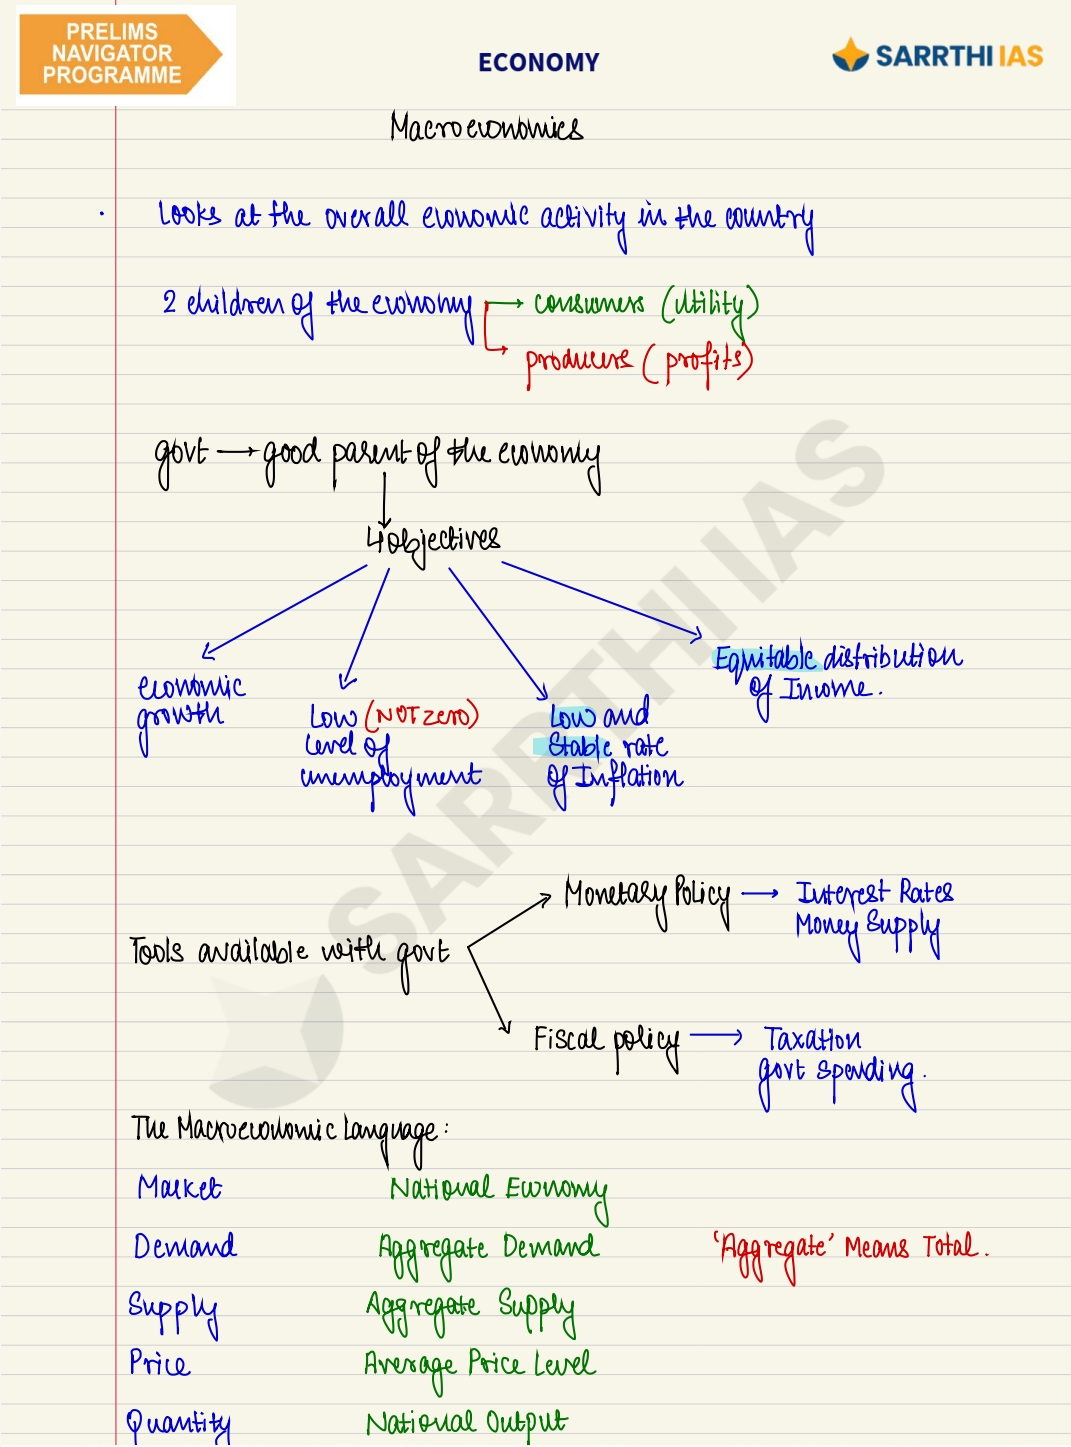 PRELIMS
NAVIGATOR
PROGRAMME
ECONOMY
SARRTHI IAS
Macroeconomics
Looks at the overall economic activity in the country
2 children of the economy → consumers (Utility)
→ producers (profits)
govt → good parent of the economy
4 objectives
economic
growth
Low (NOT zero)
level of
unemployment
Low and
Stable rate
of Inflation
Equitable distribution
of Income.
Tools available with govt
Monetary Policy → Interest Rates
Money Supply
Fiscal policy → Taxation
govt spending.
The Macroeconomic Language:
Market National Economy
Demand Aggregate Demand 'Aggregate' Means Total.
Supply Aggregate Supply
Price Average Price Level
Quantity National Output
SARRTHI IAS